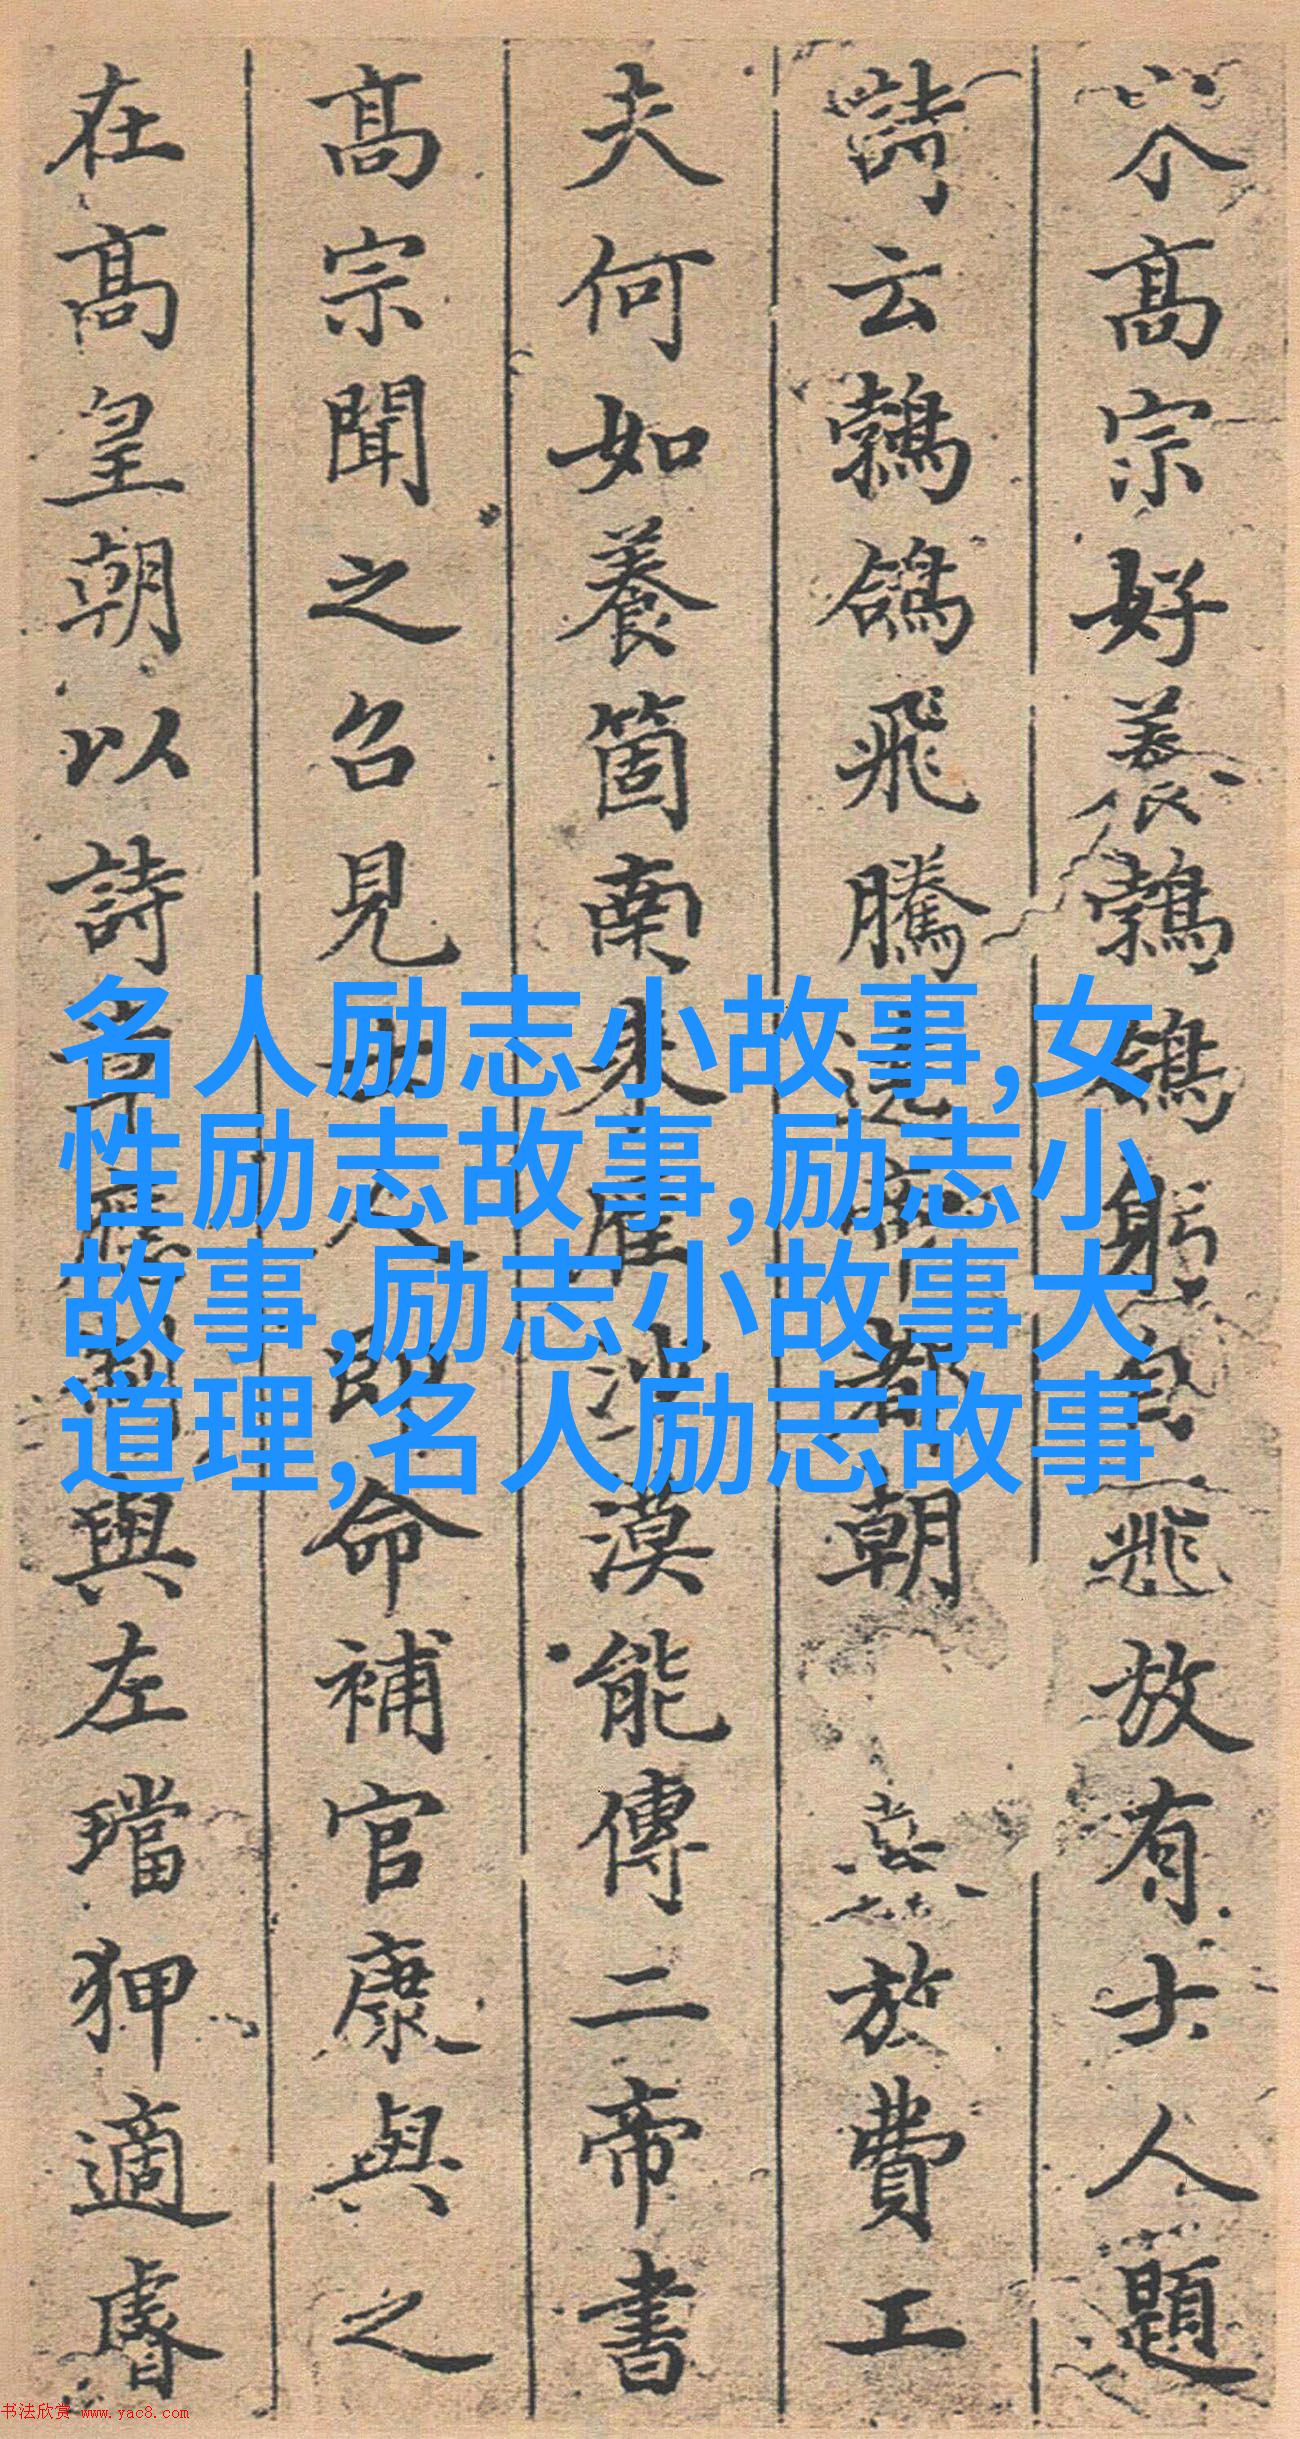 宋高宗好養鵓鴿躬自飛放有士人題
詩云鵓鴿飛騰遶帝都朝暮放費工
夫何如養箇南來雁沙漠能傳二帝書
高宗聞之召見士人即命補官康與之
在高皇朝以詩章應制與左璫狎適睿
名人励志小故事,女
性励志故事,励志小
故事,励志小故事大
道理,名人励志故事
书法欣赏 www.yac8.com